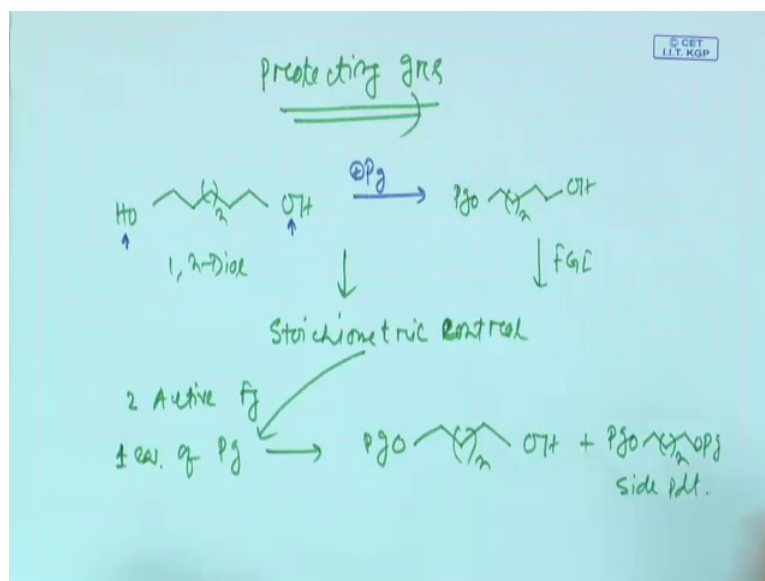 © CET
I.I.T. KGP
Protecting grs
HO ( )n OH ⊕Pg PgO ( )n OH
1,n-Diol
FGI
Stoichiometric Control
2 Active fg
1 eqv. of Pg PgO ( )n OH + PgO ( )n OPg
Side pdt.